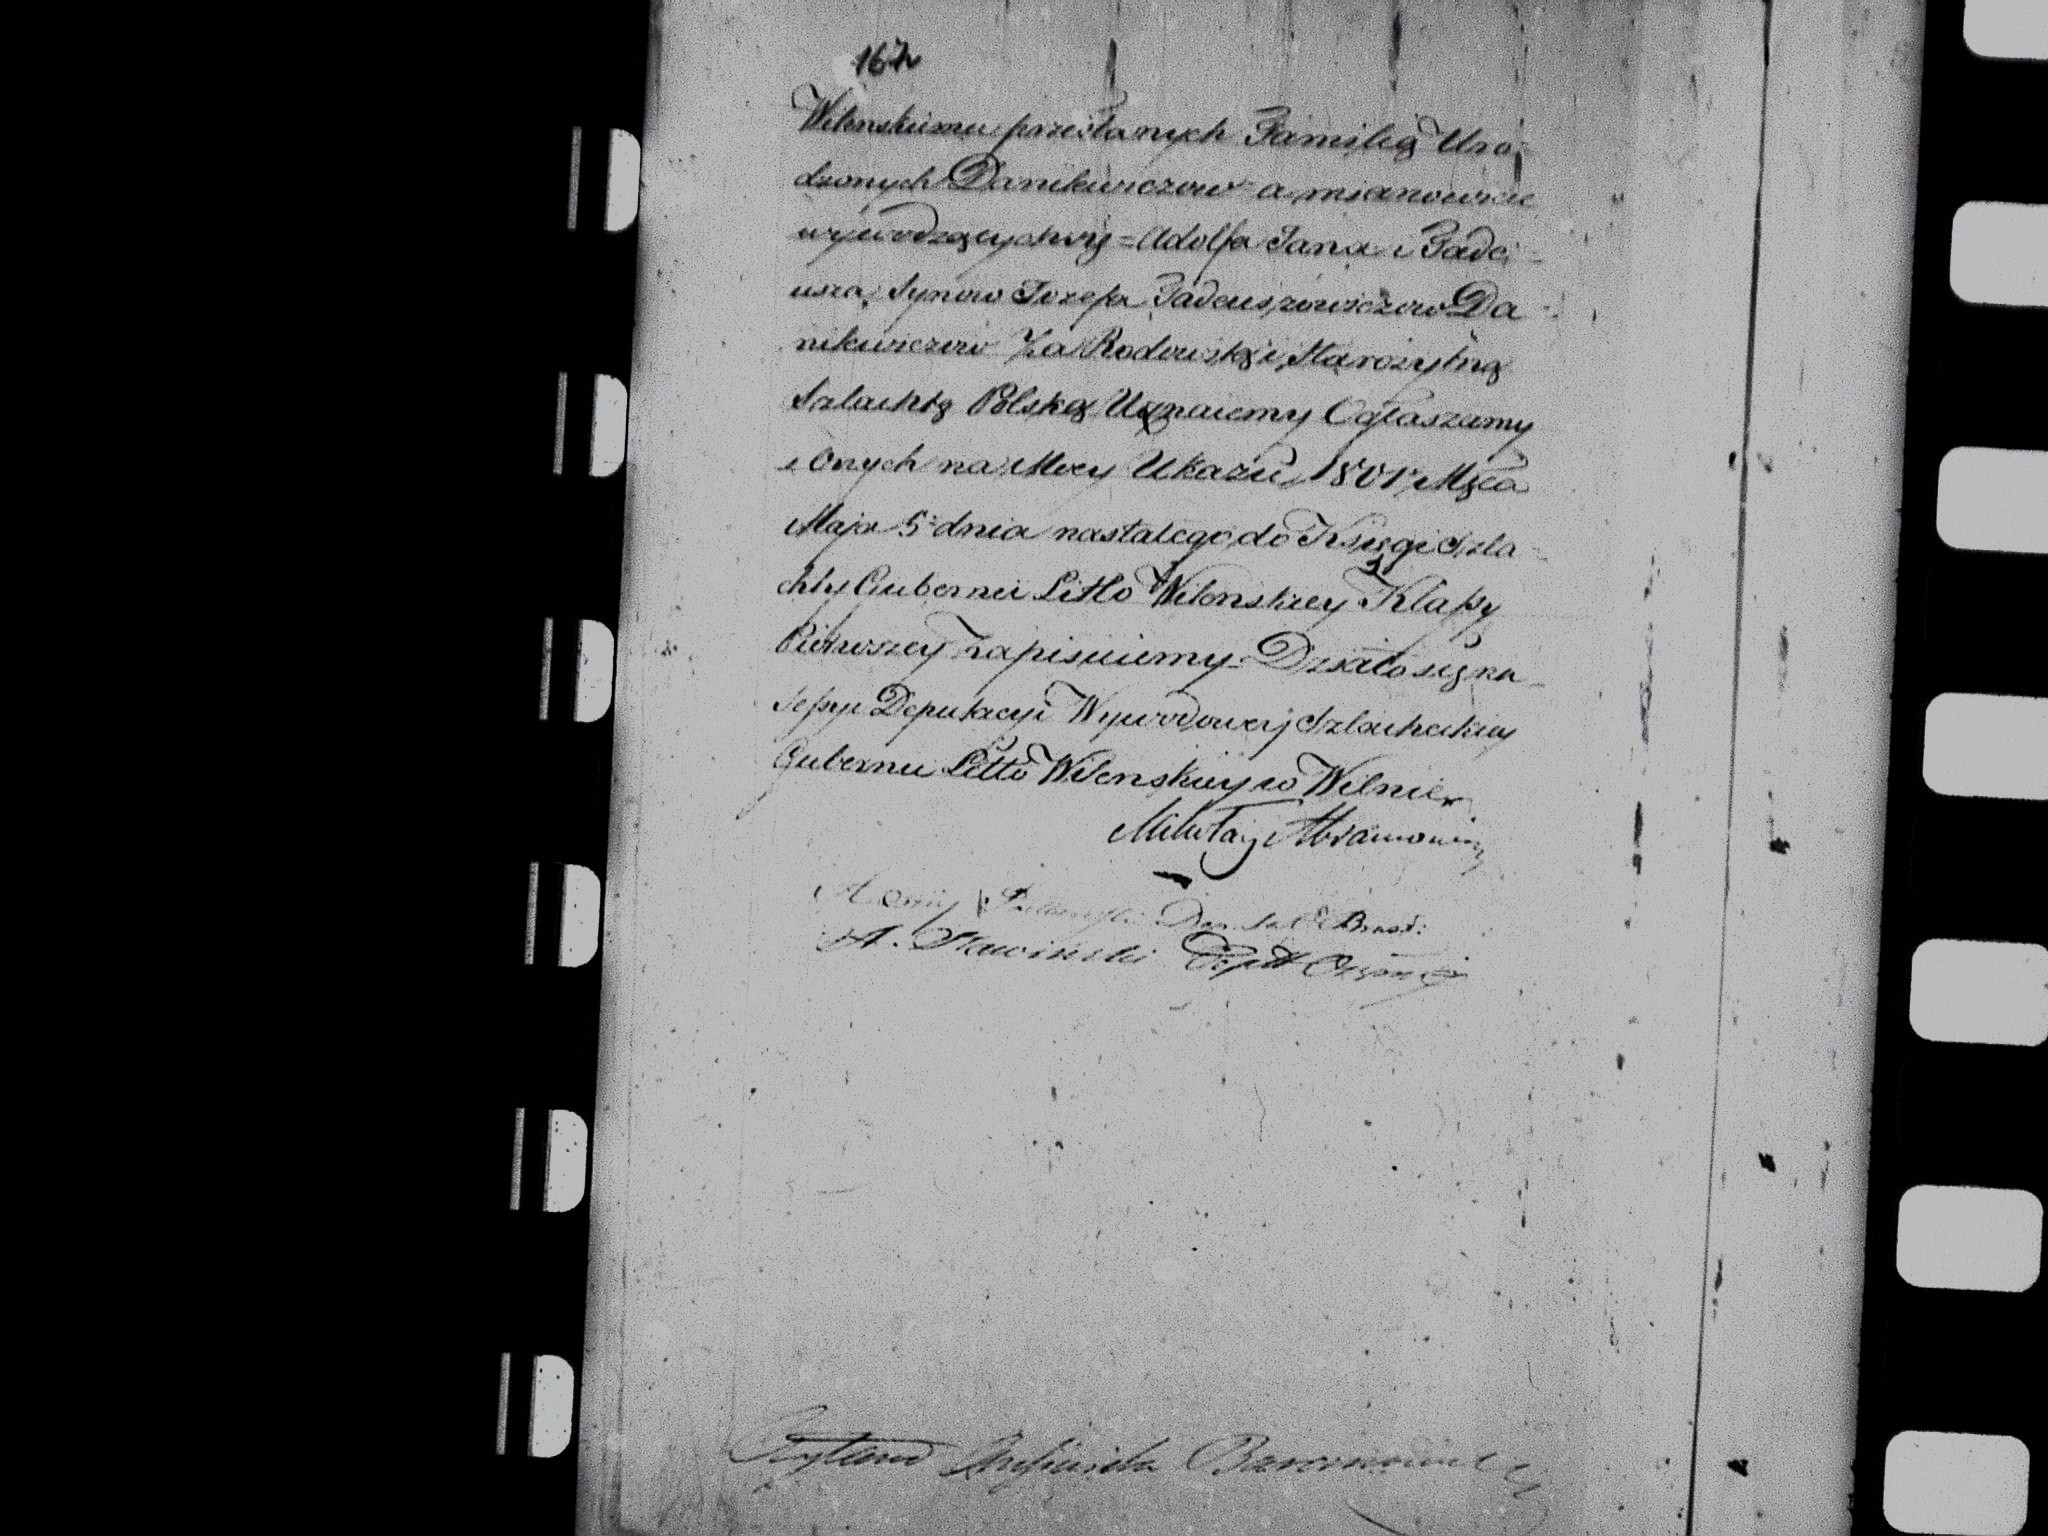 167
Wilenskiemu przesłanych Familią Uro-
dzonych Danikiewiczow a mianowicie
wywodzących się = Adolfa Jana i Tade-
usza, Synow Jozefa Tadeuszowiczow Da-
nikiewiczow Za Rodowitą i Starożytną
Szlachtę Polską Uznaiemy Ogłaszamy
i Onych na Mocy Ukazu 1801 Mca
Maja 5 dnia nastałego do Księgi Szla-
chty Gubernii Litto Wilenskiey Klassy
Pierwszey Zapisuiemy = Działo się na
Sessyi Deputacyi Wywodowej Szlacheckiey
Gubernii Litto Wilenskiey w Wilnie
Mikołay Abramowicz
Dep. Brasł:
A. Sławinski Deptt
Czytano